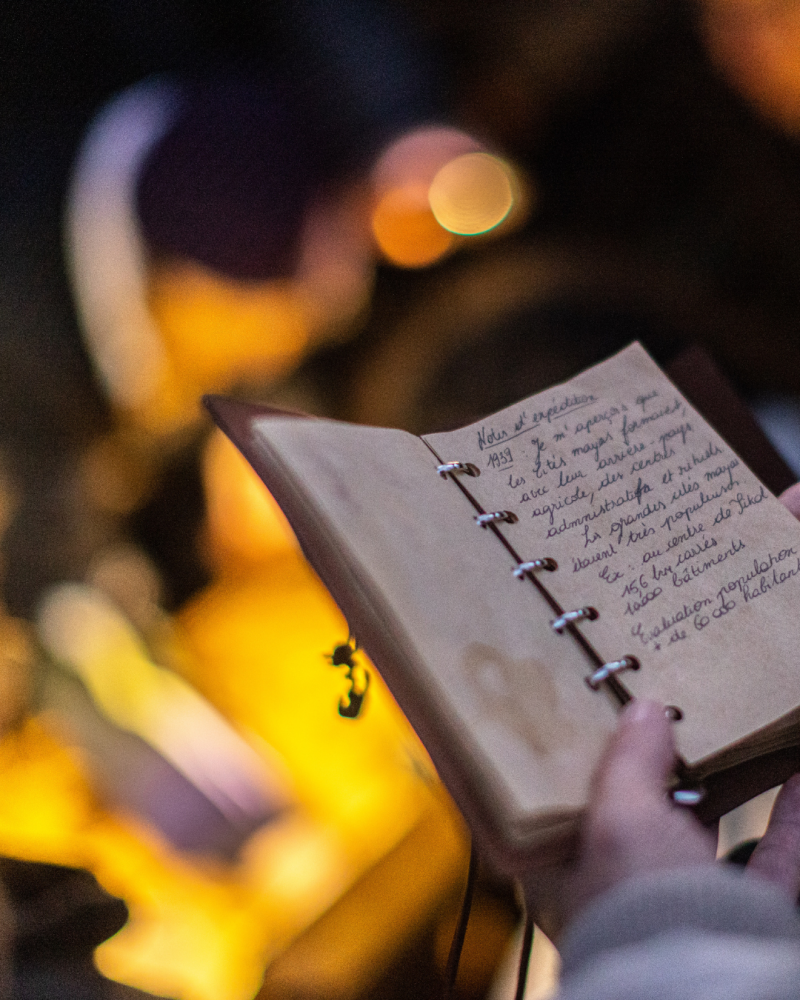 Notes d'expédition
1939 Je m'aperçois que
les cités mayas formaient,
avec leur arrière-pays
agricole, des centres
administratifs et rituels.
Les grandes cités mayas
étaient très populeuses
Ex : au centre de Tikal
156 km carrés
10000 bâtiments
Evaluation population
+ de 60 000 habitants